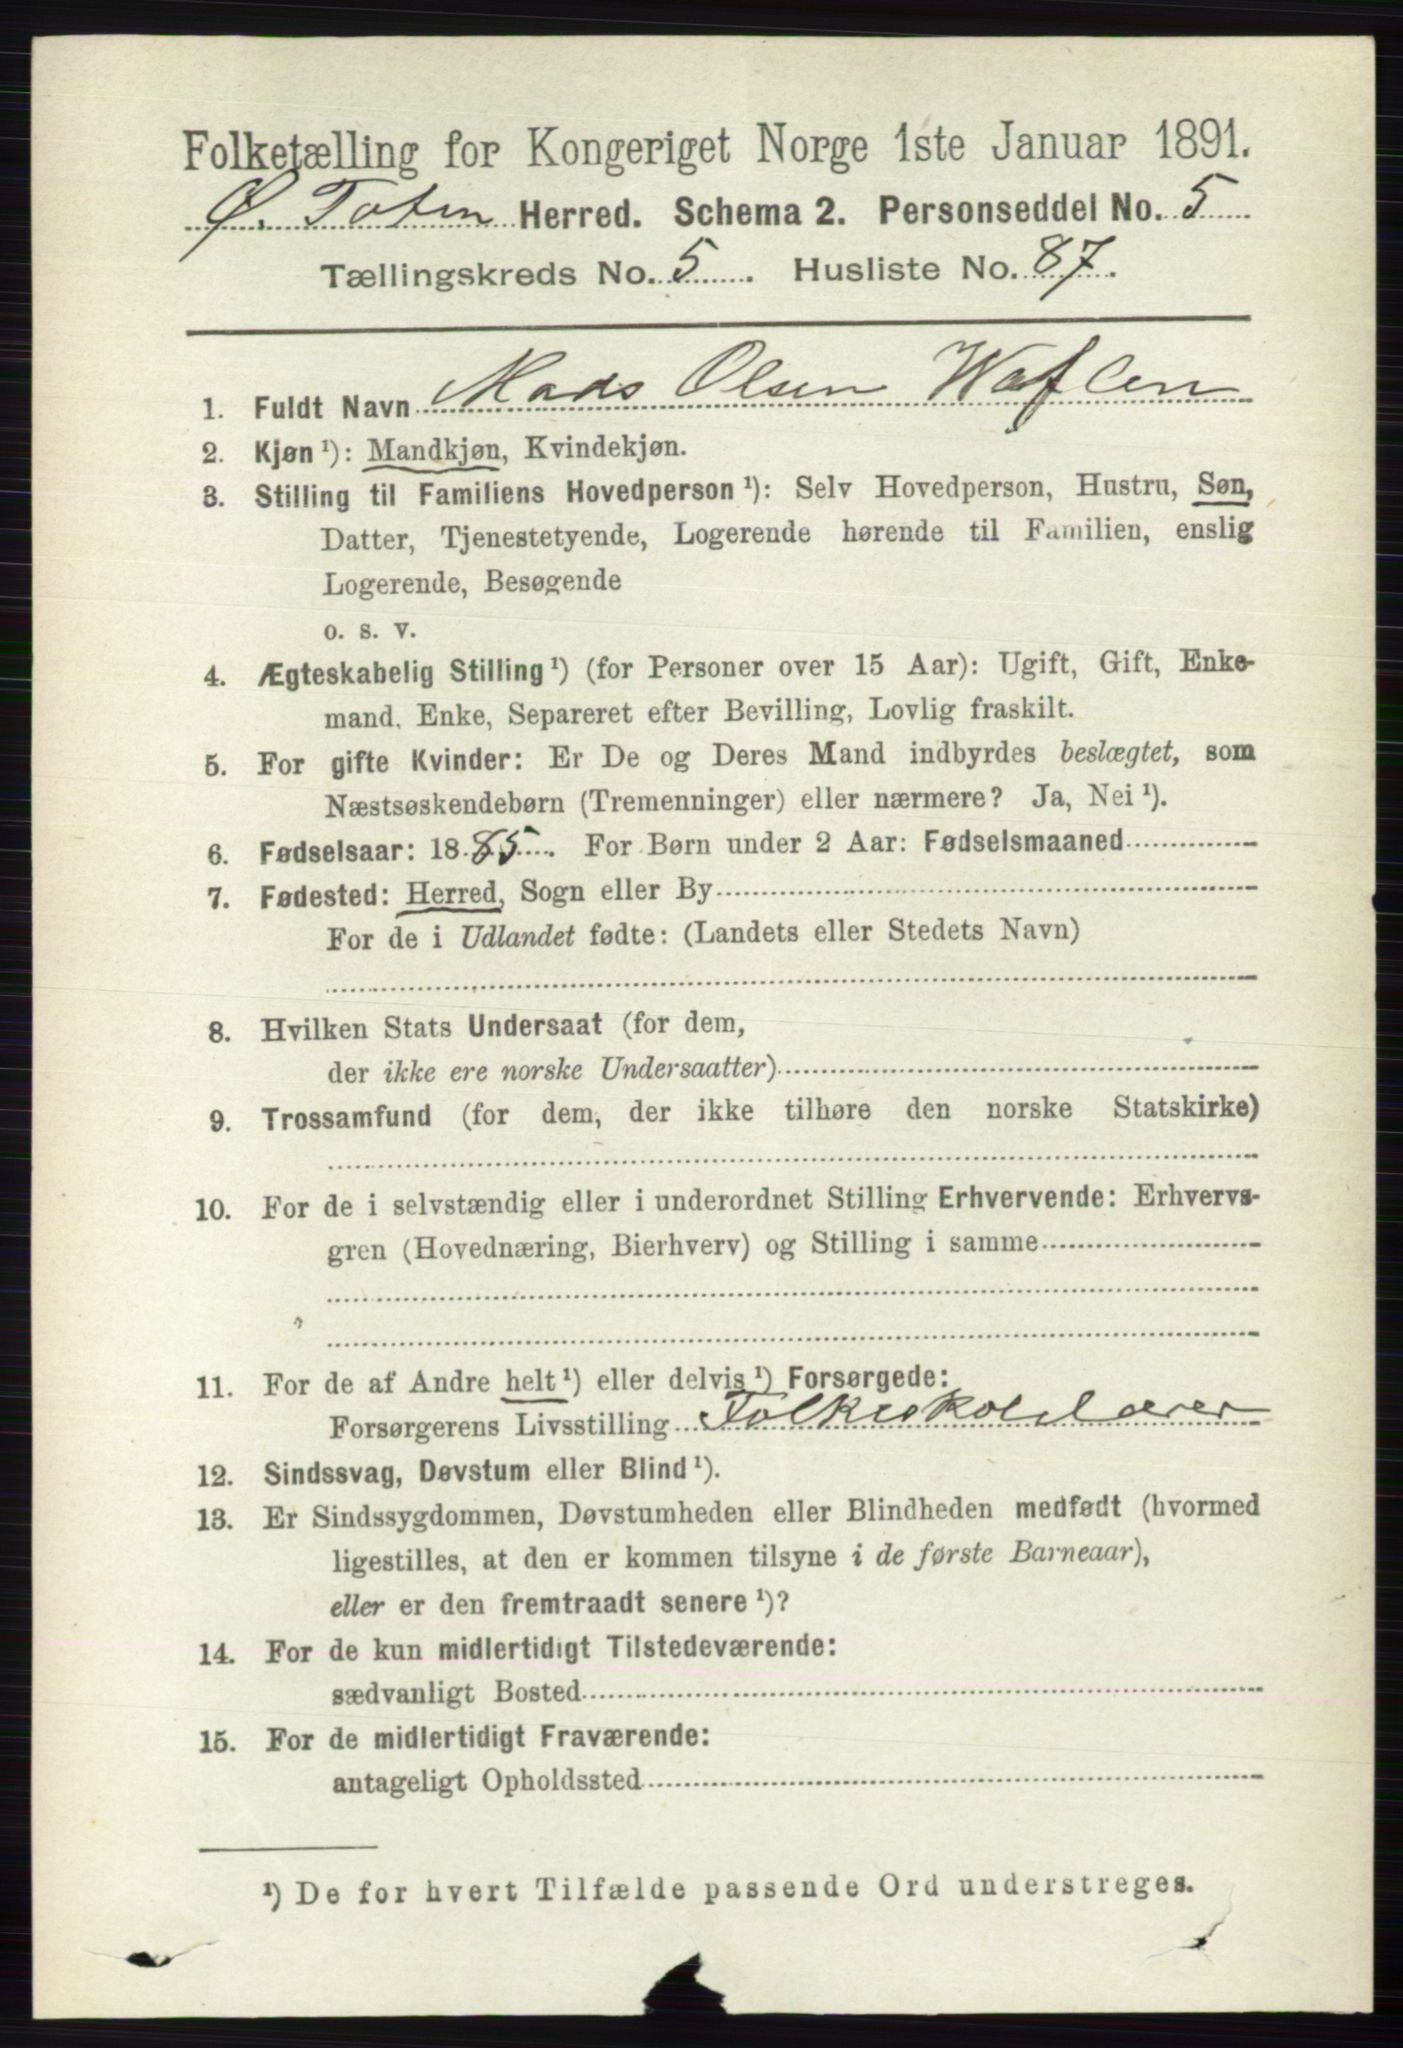 Folketælling for Kongeriget Norge 1ste Januar 1891.
Ø. Toten Herred. Schema 2. Personseddel No. 5
Tællingskreds No. 5. Husliste No. 87.
1. Fuldt Navn Mads Olsen
2. Kjøn ¹): Mandkjøn, Kvindekjøn.
3. Stilling til Familiens Hovedperson ¹): Selv Hovedperson, Hustru, Søn,
Datter, Tjenestetyende, Logerende hørende til Familien, enslig
Logerende, Besøgende
o. s. v.
4. Ægteskabelig Stilling ¹) (for Personer over 15 Aar): Ugift, Gift, Enke-
mand, Enke, Separeret efter Bevilling, Lovlig fraskilt.
5. For gifte Kvinder: Er De og Deres Mand indbyrdes beslægtet, som
Næstsøskendebørn (Tremenninger) eller nærmere? Ja, Nei ¹).
6. Fødselsaar: 1885. For Børn under 2 Aar: Fødselsmaaned
7. Fødested: Herred, Sogn eller By
For de i Udlandet fødte: (Landets eller Stedets Navn)
8. Hvilken Stats Undersaat (for dem,
der ikke ere norske Undersaatter)
9. Trossamfund (for dem, der ikke tilhøre den norske Statskirke)
10. For de i selvstændig eller i underordnet Stilling Erhvervende: Erhvervs-
gren (Hovednæring, Bierhverv) og Stilling i samme
11. For de af Andre helt ¹) eller delvis ¹) Forsørgede:
Forsørgerens Livsstilling Folkeskolelærer
12. Sindssvag, Døvstum eller Blind ¹).
13. Er Sindssygdommen, Døvstumheden eller Blindheden medfødt (hvormed
ligestilles, at den er kommen tilsyne i de første Barneaar),
eller er den fremtraadt senere ¹)?
14. For de kun midlertidigt Tilstedeværende:
sædvanligt Bosted
15. For de midlertidigt Fraværende:
antageligt Opholdssted
¹) De for hvert Tilfælde passende Ord understreges.